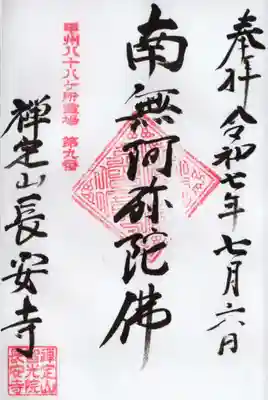 奉拝 令和七年七月六日
南無阿弥陀佛
甲州八十八ヶ所霊場 第九番
禅定山長安寺
禅定山
智光院
長安寺